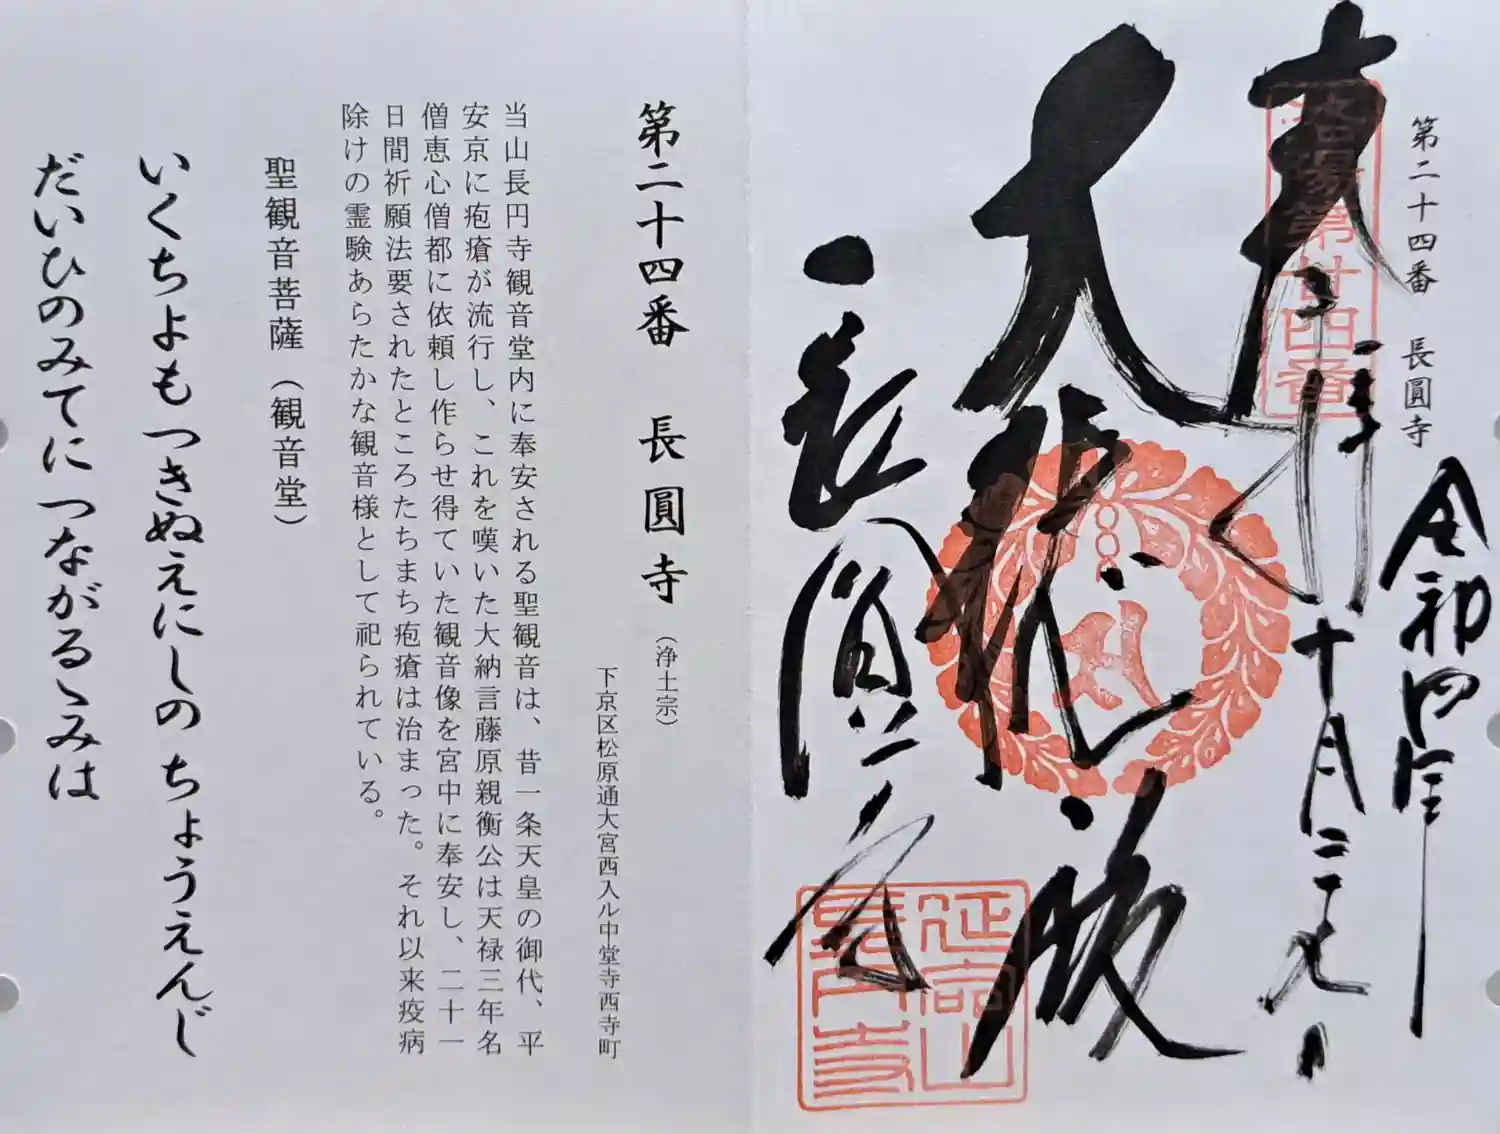 第二十四番　長圓寺
令和四年
十月二十九日
奉拝
大悲殿
長圓寺
洛陽第廿四番
延命山
長円寺
第二十四番　長圓寺（浄土宗）
下京区松原通大宮西入ル中堂寺西寺町
当山長円寺観音堂内に奉安される聖観音は、昔一条天皇の御代、平
安京に疱瘡が流行し、これを嘆いた大納言藤原親衡公は天禄三年名
僧恵心僧都に依頼し作らせ得ていた観音像を宮中に奉安し、二十一
日間祈願法要されたところたちまち疱瘡は治まった。それ以来疫病
除けの霊験あらたかな観音様として祀られている。
聖観音菩薩（観音堂）
いくちよもつきぬえにしのちょうえんじ
だいひのみてにつながるゝみは